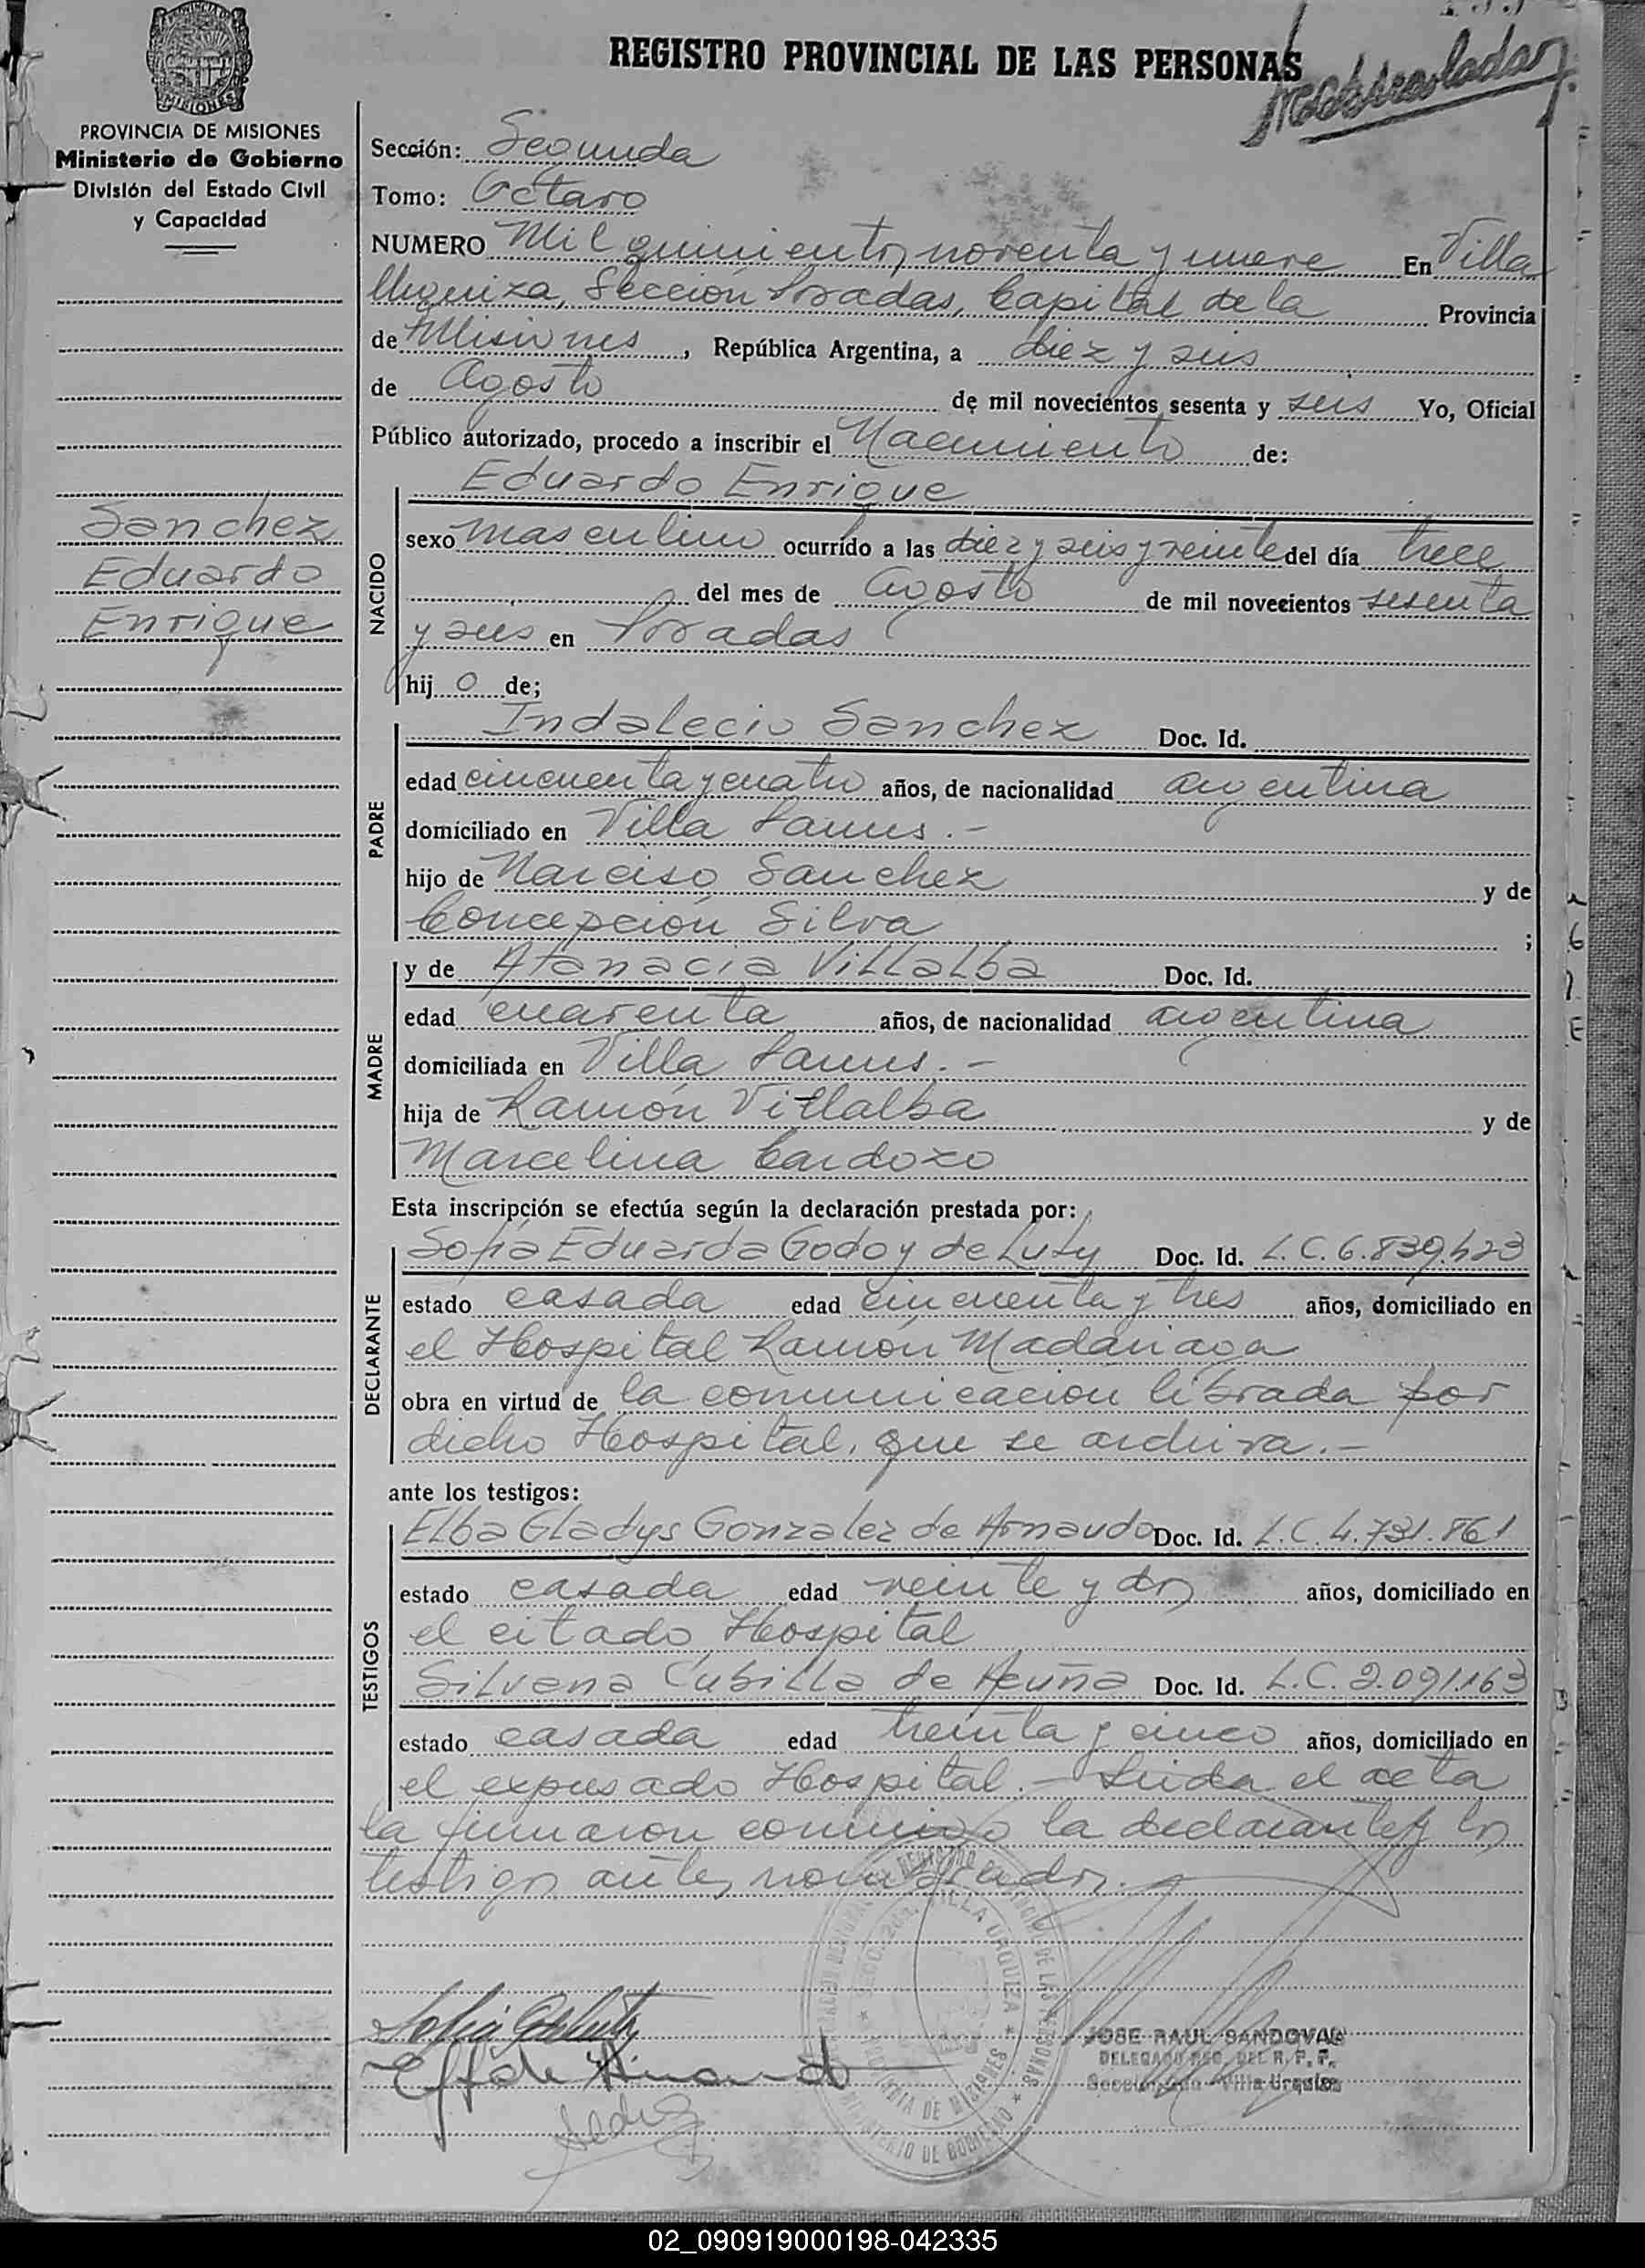 REGISTRO PROVINCIAL DE LAS PERSONAS
MISIONES
PROVINCIA DE MISIONES
Ministerio de Gobierno
División del Estado Civil
y Capacidad
Sección: Segunda
Tomo: Octavo
NUMERO Mil quinientos noventa y nueve En Villa
Urquiza, Sección Posadas, Capital de la Provincia
de Misiones, República Argentina, a diez y seis
de Agosto de mil novecientos sesenta y seis Yo, Oficial
Público autorizado, procedo a inscribir el Nacimiento de:
Sanchez
Eduardo
Enrique
NACIDO
Eduardo Enrique
sexo masculino ocurrido a las diez y seis y veinte del día trece
del mes de Agosto de mil novecientos sesenta
y seis en Posadas
hijo de;
PADRE
Indalecio Sanchez Doc. Id.
edad cincuenta y cuatro años, de nacionalidad argentina
domiciliado en Villa Lanus.-
hijo de Narciso Sanchez y de
Concepción Silva ;
MADRE
y de Atanacia Villalba Doc. Id.
edad cuarenta años, de nacionalidad argentina
domiciliada en Villa Lanus.-
hija de Ramón Villalba y de
Marcelina Cardozo
Esta inscripción se efectúa según la declaración prestada por:
DECLARANTE
Sofia Eduarda Godoy de Luty Doc. Id. L.C. 6.839.423
estado casada edad cincuenta y tres años, domiciliado en
el Hospital Ramón Madariaga
obra en virtud de la comunicación librada por
dicho Hospital, que se archiva.-
ante los testigos:
TESTIGOS
Elba Gladys Gonzalez de Arnaudo Doc. Id. L.C. 4.731.861
estado casada edad veinte y dos años, domiciliado en
el citado Hospital
Silvana Cubilla de Acuña Doc. Id. L.C. 2.091.163
estado casada edad treinta y cinco años, domiciliado en
el expresado Hospital.- Leida el acta
la firmaron conmigo la declarante y los
testigos antes nombrados.-
SECC. 2da. VILLA URQUIZA
PROVINCIA DE MISIONES
MINISTERIO DE GOBIERNO
JOSE RAUL SANDOVAL
DELEGADO REG. DEL R. P. P.
Sección 2da - Villa Urquiza
02_090919000198-042335